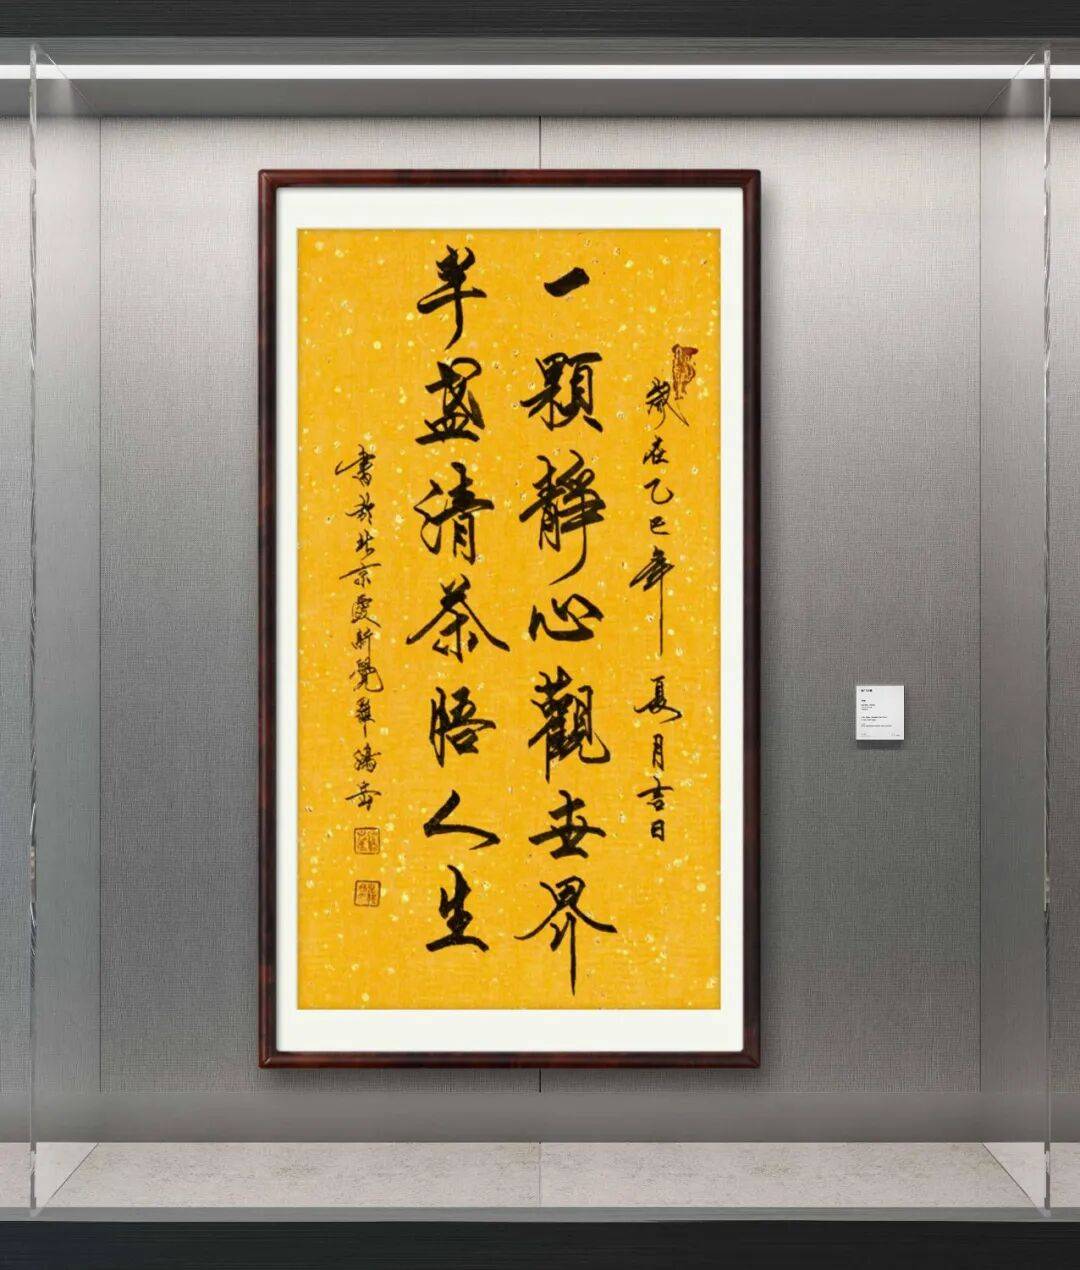 歲在乙巳年 夏月吉日
一顆靜心觀世界
半盞清茶悟人生
書於北京愛新覺羅